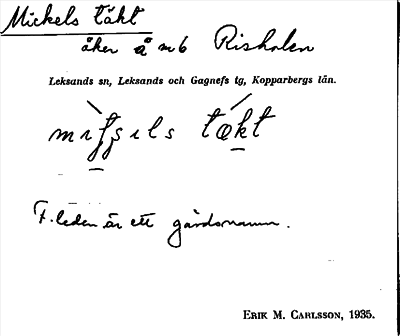 Mickels täkt
åker å m6 Risholen
Leksands sn, Leksands och Gagnefs tg, Kopparbergs län.
tækt
F. leden är ett gårdsnamn.
ERIK M. CARLSSON, 1935.